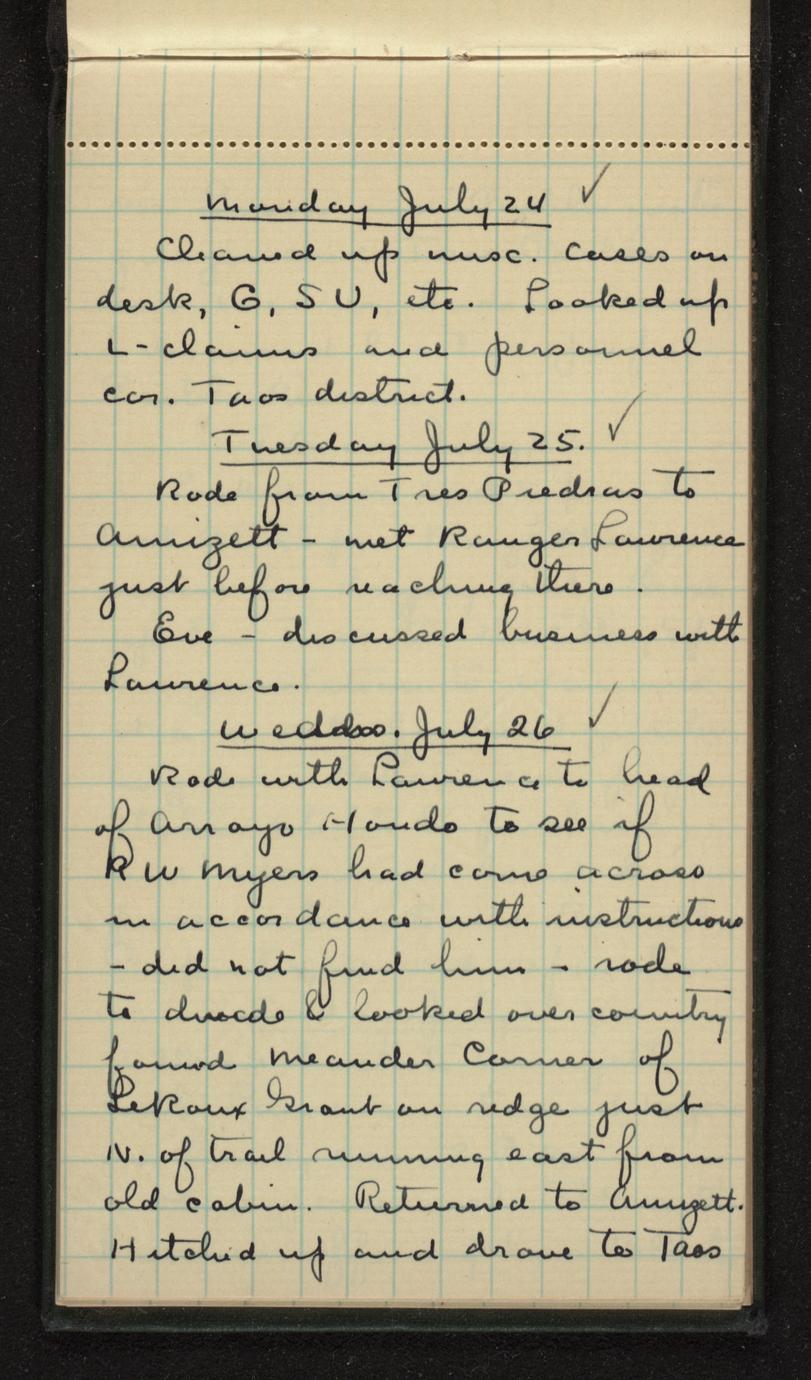 Monday July 24 ✓
Cleaned up misc. cases on
desk, G, S U, etc. Looked up
L-claims and personnel
cor. Taos district.
Tuesday July 25. ✓
Rode from Tres Piedras to
Amizett - met Ranger Lawrence
just before reaching there.
Eve - discussed business with
Lawrence.
July 26 ✓
Rode with Lawrence to head
of Arroyo Hondo to see if
R W Myers had come across
in accordance with instructions
- did not find him - rode
to divide & looked over country
found Meander Corner of
LeRoux Grant on ridge just
N. of trail running east from
old cabin. Returned to Amizett.
Hitched up and drove to Taos